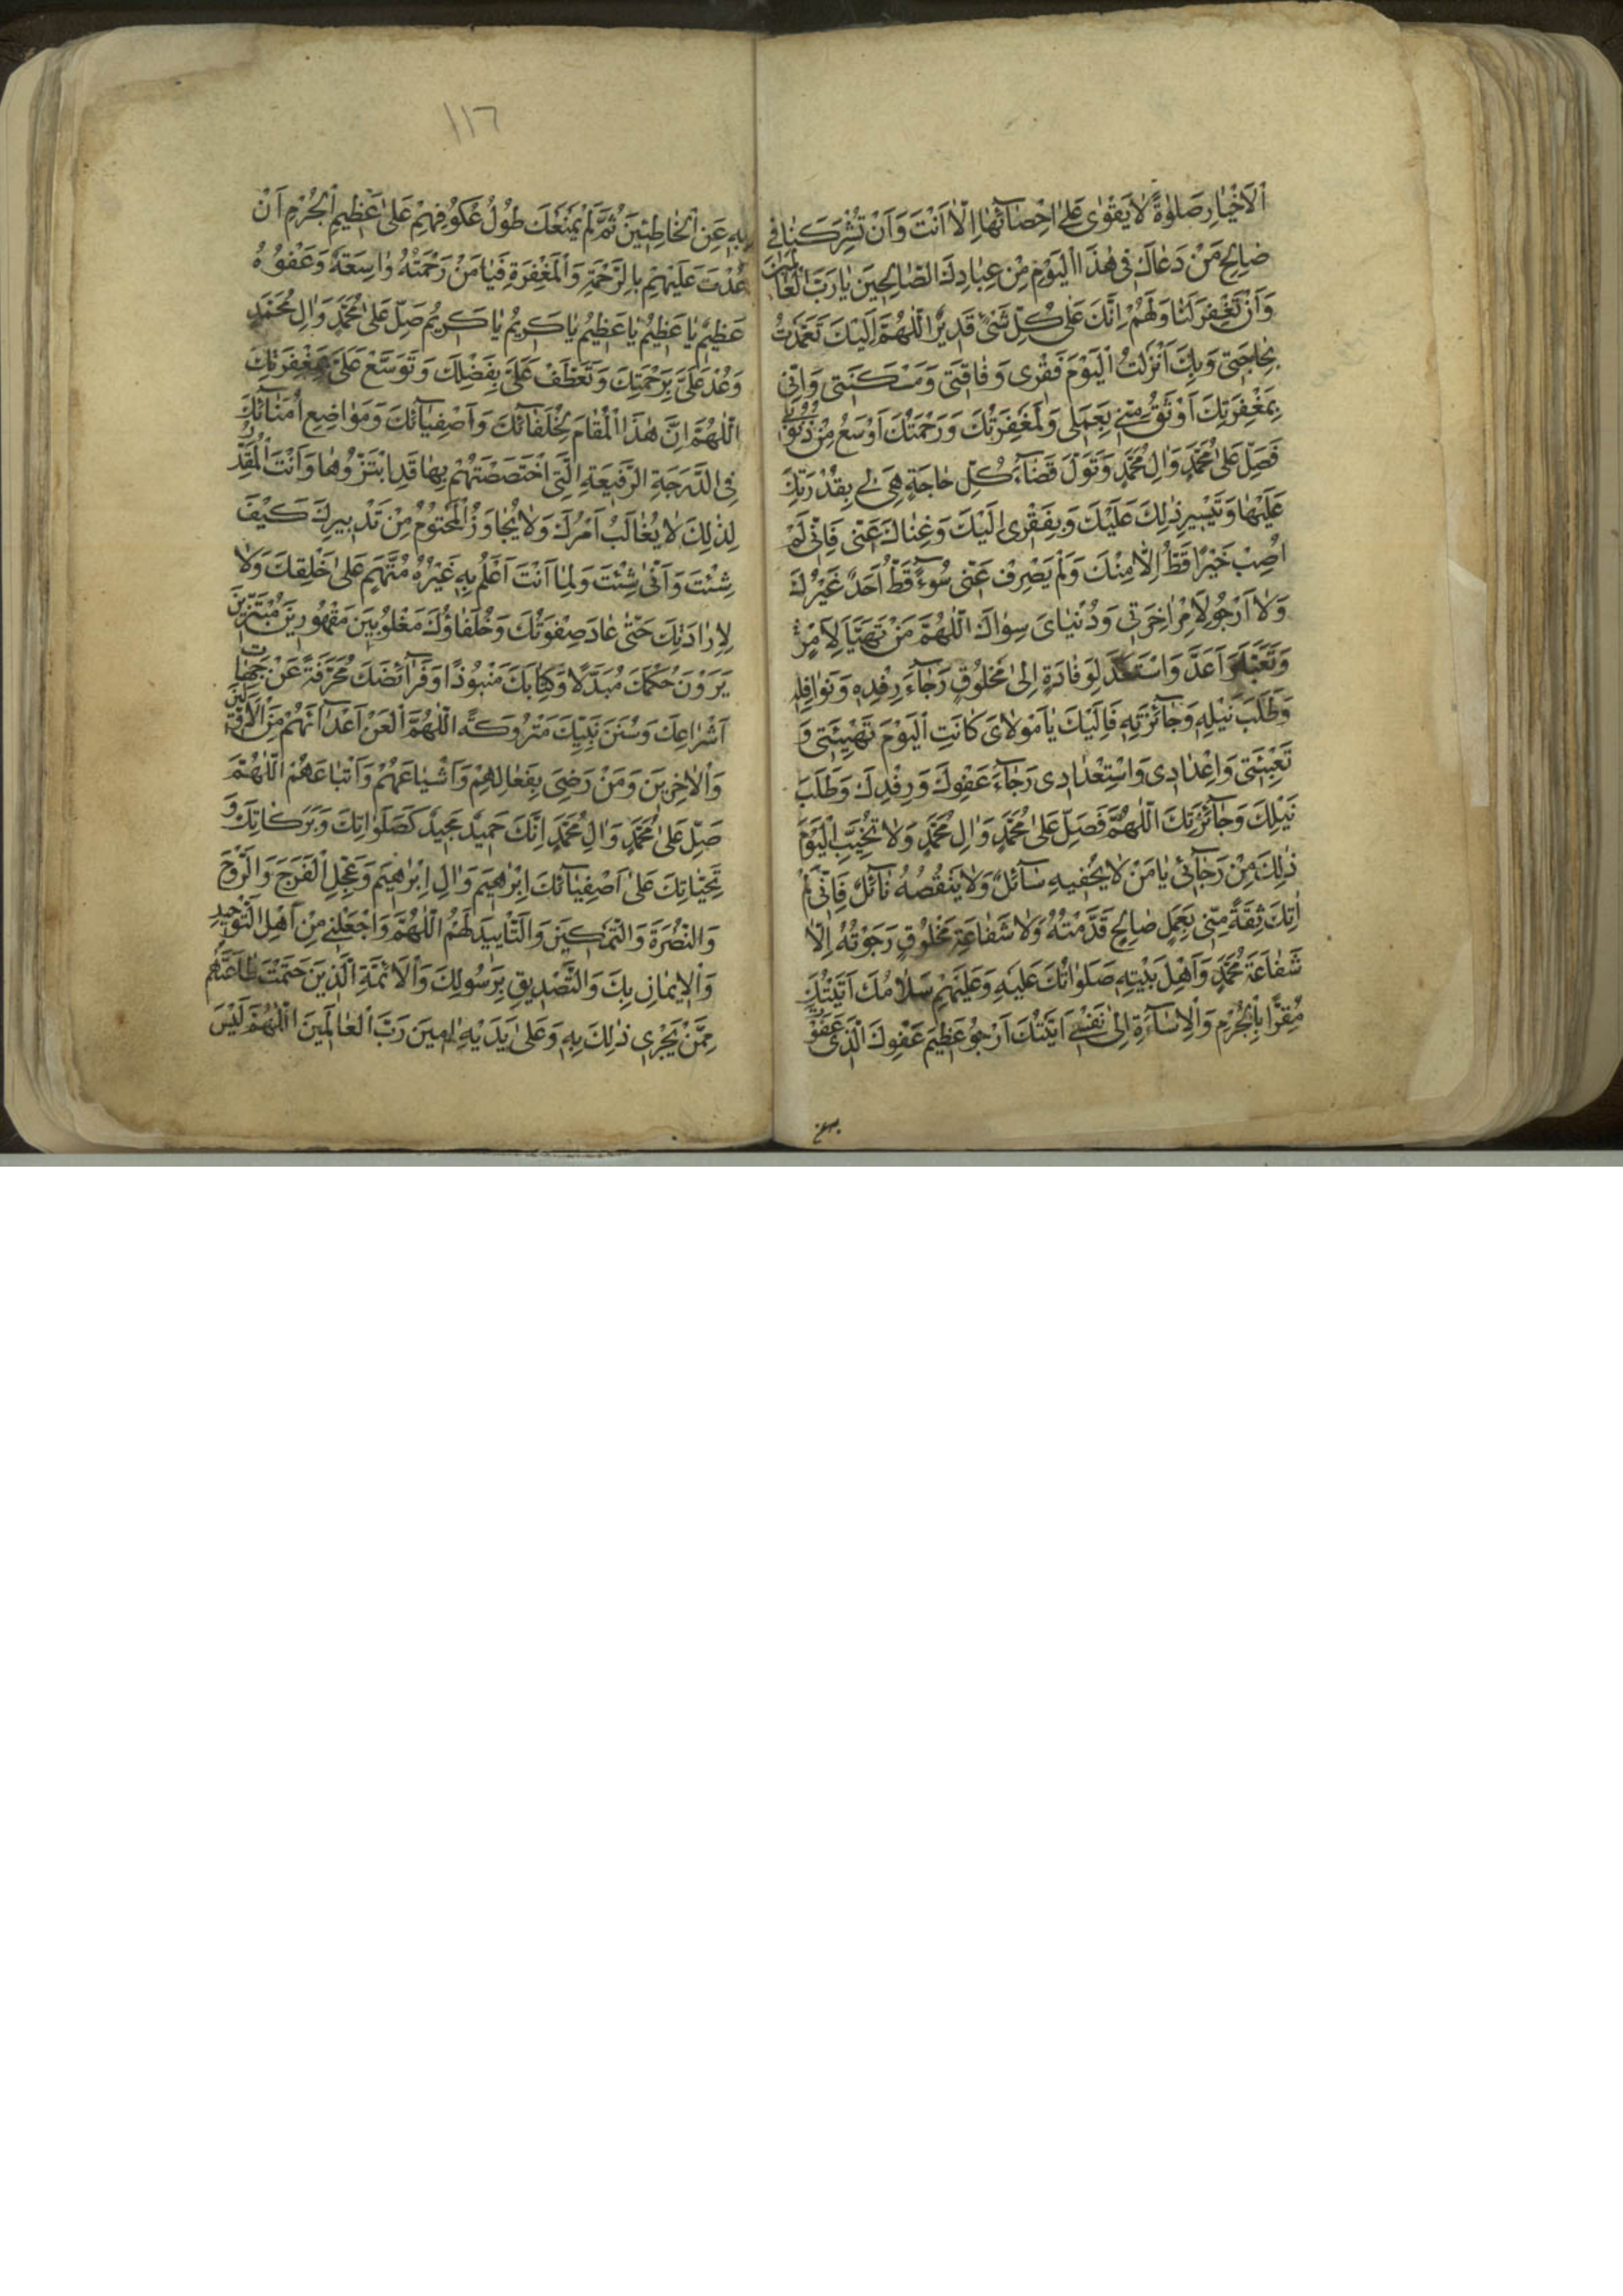 اَلْاَخْيٰارِ صَلٰوةً لٰا يَقْوٰى عَلىٰ اِحْصٰآئِهٰا اِلّٰا اَنْتَ وَاَنْ تُشْرِكَنٰا فى
صٰالِحِ مَنْ دَعٰاكَ فى هٰذَا الْيَوْمِ مِنْ عِبٰادِكَ الصّٰالِحينَ يٰا رَبَّ الْعٰالَمينَ
وَاَنْ تَغْفِرَ لَنٰا وَلَهُمْ اِنَّكَ عَلىٰ كُلِّ شَىْءٍ قَديرٌ اَللّٰهُمَّ اِلَيْكَ تَعَمَّدْتُ
بِحٰاجَتى وَبِكَ اَنْزَلْتُ الْيَوْمَ فَقْرى وَفٰاقَتى وَمَسْكَنَتى وَاِنّى
بِمَغْفِرَتِكَ اَوْثَقُ مِنّى بِعَمَلى وَلَمَغْفِرَتُكَ وَرَحْمَتُكَ اَوْسَعُ مِنْ ذُنُوبى
فَصَلِّ عَلىٰ مُحَمَّدٍ وَاٰلِ مُحَمَّدٍ وَتَوَلَّ قَضٰآءَ كُلِّ حٰاجَةٍ هِىَ لى بِقُدْرَتِكَ
عَلَيْهٰا وَتَيْسيرِ ذٰلِكَ عَلَيْكَ وَبِفَقْرى اِلَيْكَ وَغِنٰاكَ عَنّى فَاِنّى لَمْ
اُصِبْ خَيْرًا قَطُّ اِلّٰا مِنْكَ وَلَمْ يَصْرِفْ عَنّى سُوءًا قَطُّ اَحَدٌ غَيْرُكَ
وَلٰا اَرْجُو لِاَمْرِ اٰخِرَتى وَدُنْيٰاىَ سِوٰاكَ اَللّٰهُمَّ مَنْ تَهَيَّاَ لِاَمْرٍ
وَتَعَبَّاَ وَاَعَدَّ وَاسْتَعَدَّ لِوَفٰادَةٍ اِلىٰ مَخْلُوقٍ رَجٰآءَ رِفْدِهِ وَنَوٰافِلِهِ
وَطَلَبَ نَيْلِهِ وَجٰآئِزَتِهِ فَاِلَيْكَ يٰا مَوْلٰاىَ كٰانَتِ الْيَوْمَ تَهْيِئَتى وَ
تَعْبِئَتى وَاِعْدٰادى وَاسْتِعْدٰادى رَجٰآءَ عَفْوِكَ وَرِفْدِكَ وَطَلَبَ
نَيْلِكَ وَجٰآئِزَتِكَ اَللّٰهُمَّ فَصَلِّ عَلىٰ مُحَمَّدٍ وَاٰلِ مُحَمَّدٍ وَلٰا تُخَيِّبِ الْيَوْمَ
ذٰلِكَ مِنْ رَجٰآئى يٰا مَنْ لٰا يُحْفيهِ سٰآئِلٌ وَلٰا يَنْقُصُهُ نٰآئِلٌ فَاِنّى لَمْ
اٰتِكَ ثِقَةً مِنّى بِعَمَلٍ صٰالِحٍ قَدَّمْتُهُ وَلٰا شَفٰاعَةِ مَخْلُوقٍ رَجَوْتُهُ اِلّٰا
شَفٰاعَةَ مُحَمَّدٍ وَاَهْلِ بَيْتِهِ صَلَوٰاتُكَ عَلَيْهِ وَعَلَيْهِمْ سَلٰامُكَ اَتَيْتُكَ
مُقِرًّا بِالْجُرْمِ وَالْاِسٰآءَةِ اِلىٰ نَفْسى اَتَيْتُكَ اَرْجُو عَظيمَ عَفْوِكَ الَّذى عَفَوْتَ
١١٦
بِهِ عَنِ الْخٰاطِئينَ ثُمَّ لَمْ يَمْنَعْكَ طُولُ عُكُوفِهِمْ عَلىٰ عَظيمِ الْجُرْمِ اَنْ
عُدْتَ عَلَيْهِمْ بِالرَّحْمَةِ وَالْمَغْفِرَةِ فَيٰا مَنْ رَحْمَتُهُ وٰاسِعَةٌ وَعَفْوُهُ
عَظيمٌ يٰا عَظيمُ يٰا عَظيمُ يٰا كَريمُ يٰا كَريمُ صَلِّ عَلىٰ مُحَمَّدٍ وَاٰلِ مُحَمَّدٍ
وَعُدْ عَلَىَّ بِرَحْمَتِكَ وَتَعَطَّفْ عَلَىَّ بِفَضْلِكَ وَتَوَسَّعْ عَلَىَّ بِمَغْفِرَتِكَ
اَللّٰهُمَّ اِنَّ هٰذَا الْمَقٰامَ لِخُلَفٰآئِكَ وَاَصْفِيٰآئِكَ وَمَوٰاضِعِ اُمَنٰآئِكَ
فِى الدَّرَجَةِ الرَّفيعَةِ الَّتى اخْتَصَصْتَهُمْ بِهٰا قَدِ ابْتَزُّوهٰا وَاَنْتَ الْمُقَدِّرُ
لِذٰلِكَ لٰا يُغٰالَبُ اَمْرُكَ وَلٰا يُجٰاوَزُ الْمَحْتُومُ مِنْ تَدْبيرِكَ كَيْفَ
شِئْتَ وَاَنّىٰ شِئْتَ وَلِمٰا اَنْتَ اَعْلَمُ بِهِ غَيْرُ مُتَّهَمٍ عَلىٰ خَلْقِكَ وَلٰا
لِاِرٰادَتِكَ حَتّىٰ عٰادَ صِفْوَتُكَ وَخُلَفٰاؤُكَ مَغْلُوبينَ مَقْهُورينَ مُبْتَزّينَ
يَرَوْنَ حُكْمَكَ مُبَدَّلًا وَكِتٰابَكَ مَنْبُوذًا وَفَرٰآئِضَكَ مُحَرَّفَةً عَنْ جِهٰاتِ
اَشْرٰاعِكَ وَسُنَنَ نَبِيِّكَ مَتْرُوكَةً اَللّٰهُمَّ الْعَنْ اَعْدٰآئَهُمْ مِنَ الْاَوَّلينَ
وَالْاٰخِرينَ وَمَنْ رَضِىَ بِفِعٰالِهِمْ وَاَشْيٰاعَهُمْ وَاَتْبٰاعَهُمْ اَللّٰهُمَّ
صَلِّ عَلىٰ مُحَمَّدٍ وَاٰلِ مُحَمَّدٍ اِنَّكَ حَميدٌ مَجيدٌ كَصَلَوٰاتِكَ وَبَرَكٰاتِكَ وَ
تَحِيّٰاتِكَ عَلىٰ اَصْفِيٰآئِكَ اِبْرٰهيمَ وَاٰلِ اِبْرٰهيمَ وَعَجِّلِ الْفَرَجَ وَالرَّوْحَ
وَالنُّصْرَةَ وَالتَّمْكينَ وَالتَّاْييدَ لَهُمْ اَللّٰهُمَّ وَاجْعَلْنى مِنْ اَهْلِ التَّوْحيدِ
وَالْاِيمٰانِ بِكَ وَالتَّصْديقِ بِرَسُولِكَ وَالْاَئِمَّةِ الَّذينَ حَتَمْتَ طٰاعَتَهُمْ
مِمَّنْ يَجْرى ذٰلِكَ بِهِ وَعَلىٰ يَدَيْهِ اٰمينَ رَبَّ الْعٰالَمينَ اَللّٰهُمَّ لَيْسَ